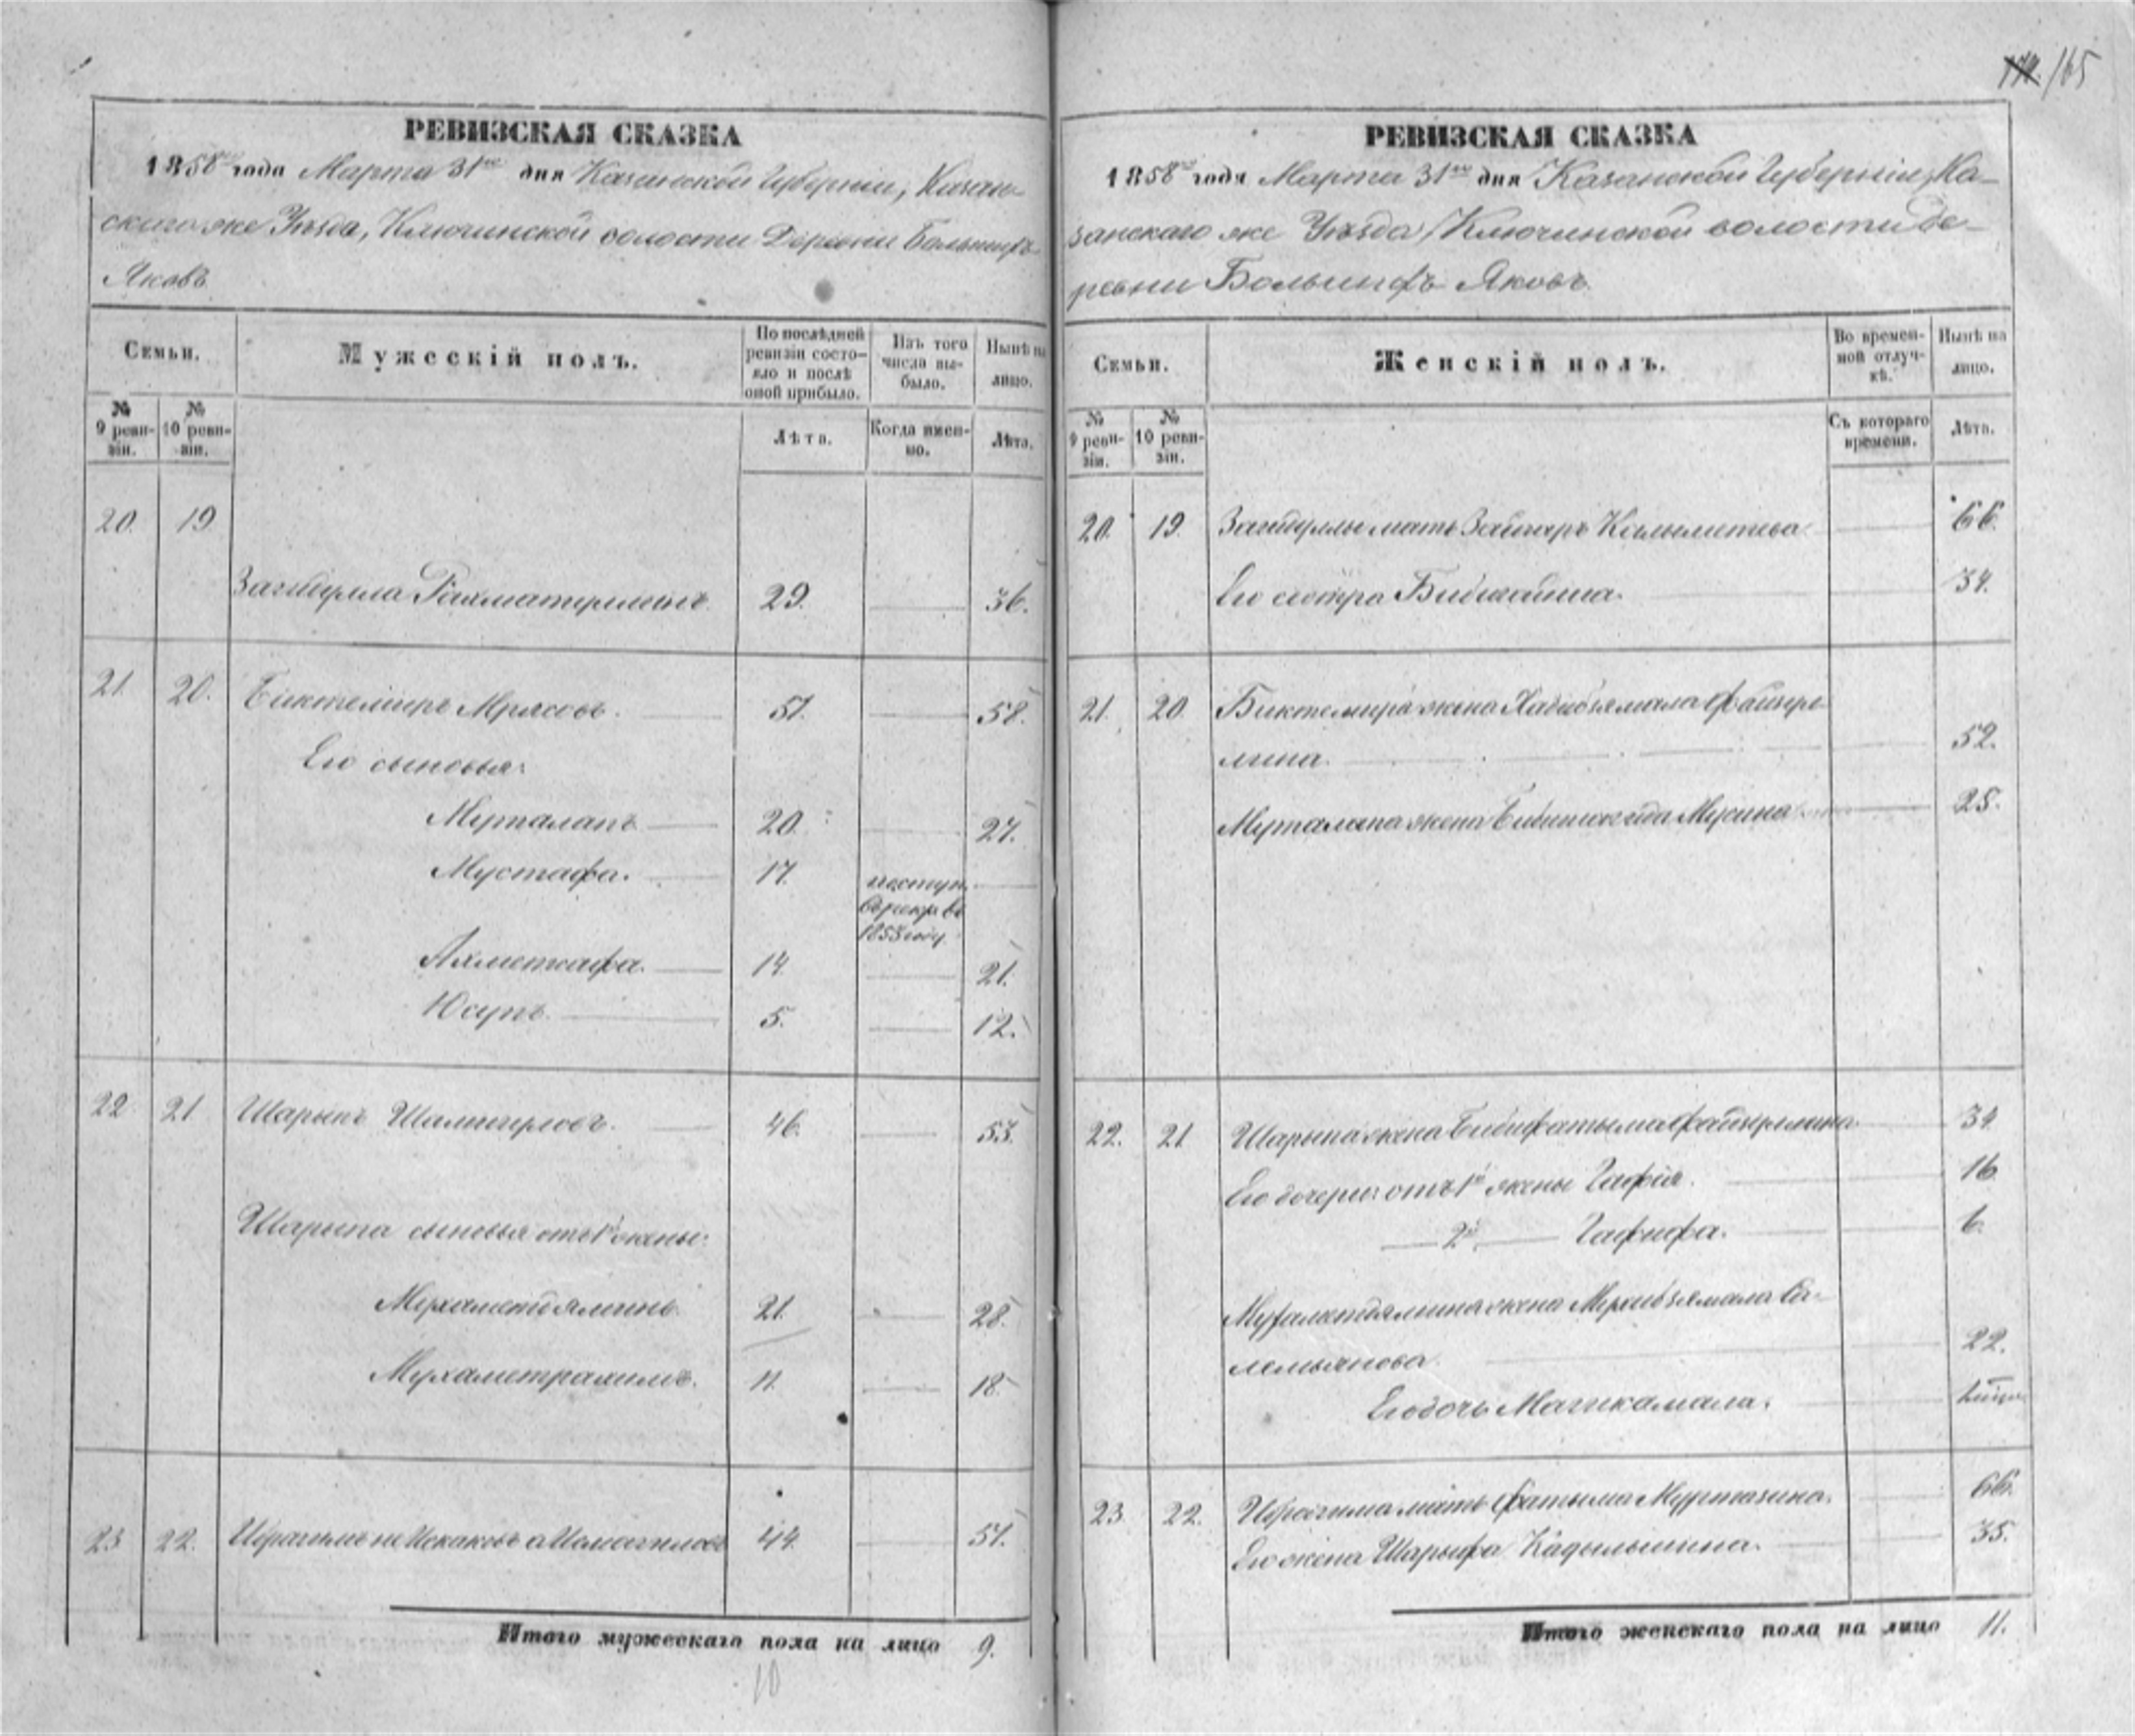 165
РЕВИЗСКАЯ СКАЗКА
1858 года Марта 31го дня Казанской Губерніи, Казан-
скаго же Уѣзда, Ключинской волости Деревни Большихъ
Яковъ
Семьи.
Мужескій полъ.
По послѣдней ревизіи состояло и послѣ оной прибыло.
Изъ того числа выбыло.
Нынѣ на лицо.
№ 9 ревизіи.
№ 10 ревизіи.
Лѣта.
Когда именно.
Лѣта.
20. 19
Загидулла Рахматуллинъ 29. 36.
21. 20. Биктемиръ Мрясовъ. 51. 58.
Его сыновья:
Мурталапъ 20. 27.
Мустафа. 17. поступ.
въ рекр. въ
1853 году
Ахметсафа. 14. 21.
Юсупъ. 5. 12.
22 21 Шарыпъ Шамигуловъ. 46. 53.
Шарыпа сыновья отъ 1й жены:
Мухаметдяминъ. 21. 28.
Мухаметрахимъ. 11. 18.
23 22. Ибрагимъ не Искаковъ а Исмагиловъ 44. 51.
Итого мужескаго пола на лицо 9.
10
РЕВИЗСКАЯ СКАЗКА
1858 года Марта 31го дня Казанской Губерніи, Ка-
занскаго же Уѣзда, Ключинской волости де-
ревни Большихъ Яковъ.
Семьи.
Женскій полъ.
Во временной отлучкѣ.
Нынѣ на лицо.
№ 9 ревизіи.
№ 10 ревизіи.
Съ котораго времени.
Лѣта.
20. 19. Загидуллы мать 66.
Его сестра 34.
21. 20. Биктемира жена Хабибзямала Файзул-
лина. 52.
Мурталапа жена Мусина 25.
22. 21 Шарыпа жена Бибифатыма Файзуллина. 34
Его дочери: отъ 1й жены Гафія. 16
2й Гафифа. 6.
Мухаметдямина жена Мухибзямала Га-
лемьянова. 22.
Его дочь Магикамала.
23 22. Ибрагима мать Фатыма Муртазина. 66.
Его жена Шарыфа Кадылышина. 35.
Итого женскаго пола на лицо 11.